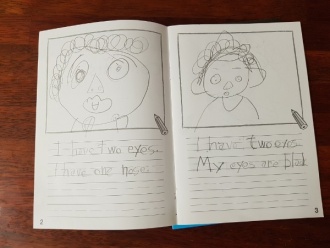 I have two eyes.
I have one nose.
2
I have two eyes
My eyes are
3